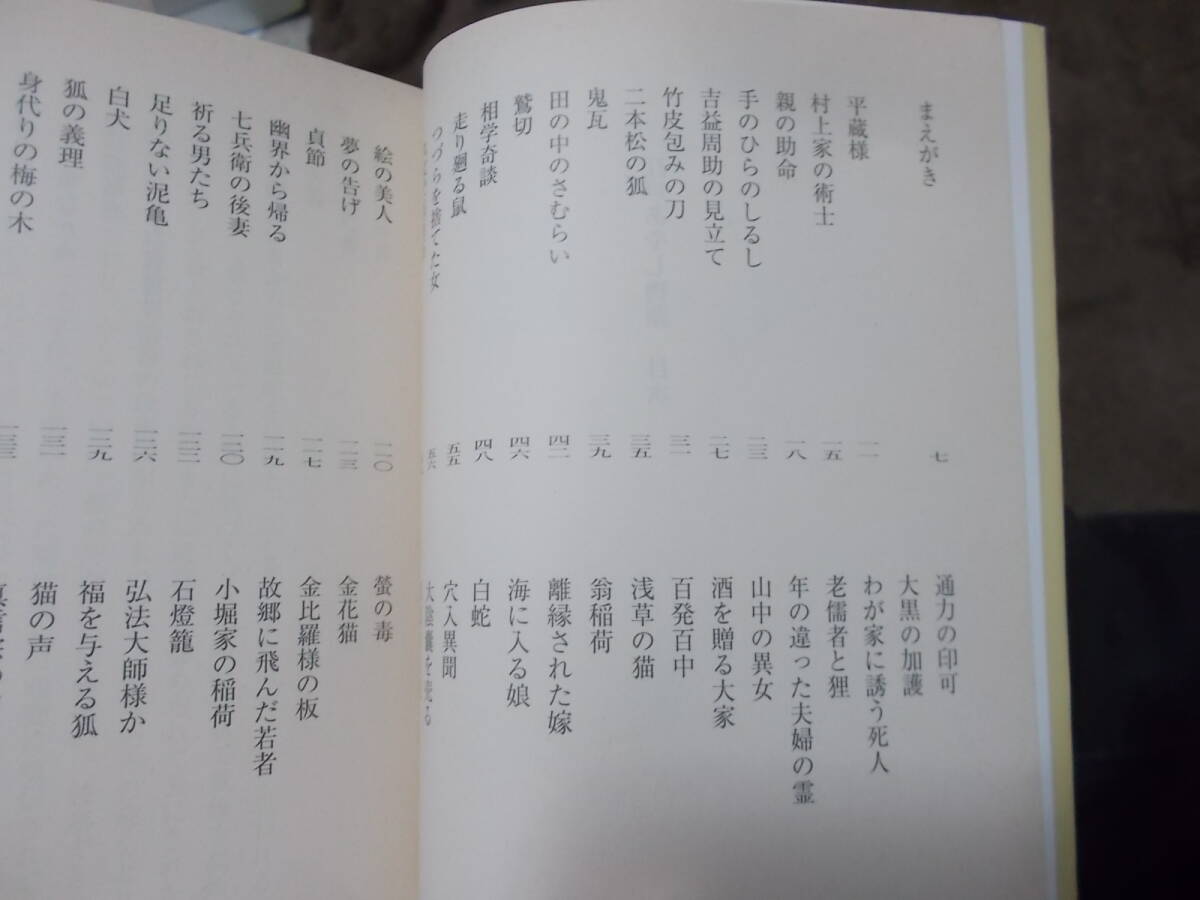 まえがき 七
平蔵様 一一
村上家の術士 一五
親の助命 一八
手のひらのしるし 二三
吉益周助の見立て 二七
竹皮包みの刀 三一
二本松の狐 三五
鬼瓦 三九
田の中のさむらい 四二
鷲切 四六
相学奇談 四八
走り廻る鼠 五五
つづらを捨てた女 五六
通力の印可
大黒の加護
わが家に誘う死人
老儒者と狸
年の違った夫婦の霊
山中の異女
酒を贈る大家
百発百中
浅草の猫
翁稲荷
離縁された嫁
海に入る娘
白蛇
穴入異聞
大陰嚢を売る
絵の美人 一一〇
夢の告げ 一一三
貞節 一一七
幽界から帰る 一一九
七兵衛の後妻 一二〇
祈る男たち 一二三
足りない泥亀 一二六
白犬 一二九
狐の義理 一三一
身代りの梅の木 一三三
螢の毒
金花猫
金比羅様の板
故郷に飛んだ若者
小堀家の稲荷
石燈籠
弘法大師様か
福を与える狐
猫の声